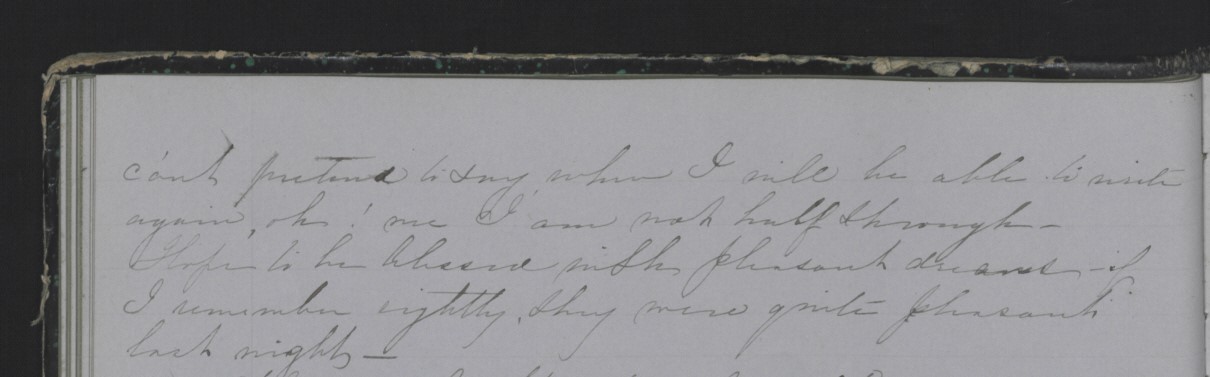 can't pretend to say when I will be able to write
again, oh! me I am not half through -
Hope to be blessed with pleasant dreams - if
I remember rightly, they were quite pleasant
last night -